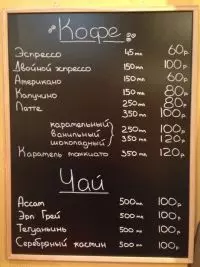 Кофе
Эспрессо 45мл 60р.
Двойной эспрессо 150мл 100р.
Американо 150мл 60р.
Капучино 150мл 80р.
Латте 250мл 80р.
350мл 100р.
карамельный
ванильный 250мл 100р.
шоколадный 350мл 120р.
Карамель 350мл 120р.
Чай
Ассам 500мл 100р.
Эрл Грей 500мл 100р.
Тегуаньинь 500мл 100р.
Серебряный 500мл 100р.